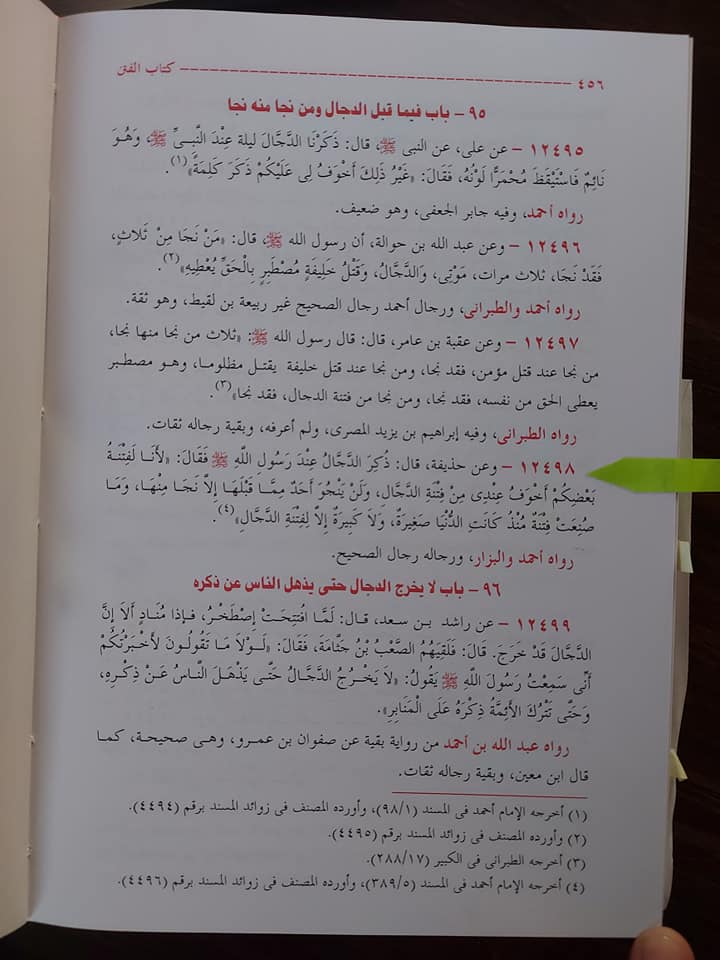 ٤٥٦ ---------------------------------------- كتاب الفتن
٩٥ – باب فيما قبل الدجال ومن نجا منه نجا
١٢٤٩٥ – عن على، عن النبى ﷺ، قال: ذَكَرْنَا الدَّجَّالَ ليلة عِنْدَ النَّبِىِّ ﷺ، وَهُوَ
نَائِمٌ فَاسْتَيْقَظَ مُحْمَرًّا لَوْنُهُ، فَقَالَ: «غَيْرُ ذَلِكَ أَخْوَفُ لِى عَلَيْكُمْ ذَكَرَ كَلِمَةً»(١).
رواه أحمد، وفيه جابر الجعفى، وهو ضعيف.
١٢٤٩٦ – وعن عبد الله بن حوالة، أن رسول الله ﷺ، قال: «مَنْ نَجَا مِنْ ثَلاثٍ،
فَقَدْ نَجَا، ثلاث مرات، مَوْتِى، وَالدَّجَّالُ، وَقَتْلُ خَلِيفَةٍ مُصْطَبِرٍ بِالْحَقِّ يُعْطِيهِ»(٢).
رواه أحمد والطبرانى، ورجال أحمد رجال الصحيح غير ربيعة بن لقيط، وهو ثقة.
١٢٤٩٧ – وعن عقبة بن عامر، قال: قال رسول الله ﷺ: «ثلاث من نجا منها نجا،
من نجا عند قتل مؤمن، فقد نجا، ومن نجا عند قتل خليفة يقتل مظلوما، وهو مصطبر
يعطى الحق من نفسه، فقد نجا، ومن نجا من فتنة الدجال، فقد نجا»(٣).
رواه الطبرانى، وفيه إبراهيم بن يزيد المصرى، ولم أعرفه، وبقية رجاله ثقات.
١٢٤٩٨ – وعن حذيفة، قال: ذُكِرَ الدَّجَّالُ عِنْدَ رَسُولِ اللَّهِ ﷺ فَقَالَ: «لأَنَا لَفِتْنَةُ
بَعْضِكُمْ أَخْوَفُ عِنْدِى مِنْ فِتْنَةِ الدَّجَّالِ، وَلَنْ يَنْجُوَ أَحَدٌ مِمَّا قَبْلَهَا إِلاَّ نَجَا مِنْهَا، وَمَا
صُنِعَتْ فِتْنَةٌ مُنْذُ كَانَتِ الدُّنْيَا صَغِيرَةٌ، وَلاَ كَبِيرَةٌ إِلاَّ لِفِتْنَةِ الدَّجَّالِ»(٤).
رواه أحمد والبزار، ورجاله رجال الصحيح.
٩٦ – باب لا يخرج الدجال حتى يذهل الناس عن ذكره
١٢٤٩٩ – عن راشد بن سعد، قال: لَمَّا افْتتِحَتْ إِصْطَخْرُ، فـإذا مُنَادٍ أَلاَ إِنَّ
الدَّجَّالَ قَدْ خَرَجَ. قَالَ: فَلَقِيَهُمُ الصَّعْبُ بْنُ جَثَّامَةَ، فَقَالَ: «لَوْلاَ مَا تَقُولُونَ لأَخْبَرْتُكُمْ
أَنِّى سَمِعْتُ رَسُولَ اللَّهِ ﷺ يَقُولُ: «لاَ يَخْرُجُ الدَّجَّالُ حَتَّى يَذْهَلَ النَّاسُ عَنْ ذِكْرِهِ،
وَحَتَّى تَتْرُكَ الأَئِمَّةُ ذِكْرَهُ عَلَى الْمَنَابِرِ».
رواه عبد الله بن أحمد من رواية بقية عن صفوان بن عمرو، وهى صحيحة، كما
قال ابن معين، وبقية رجاله ثقات.
(١) أخرجه الإمام أحمد فى المسند (٩٨/١)، وأورده المصنف فى زوائد المسند برقم (٤٤٩٤).
(٢) وأورده المصنف فى زوائد المسند برقم (٤٤٩٥).
(٣) أخرجه الطبرانى فى الكبير (٢٨٨/١٧).
(٤) أخرجه الإمام أحمد فى المسند (٣٨٩/٥)، وأورده المصنف فى زوائد المسند برقم (٤٤٩٦).